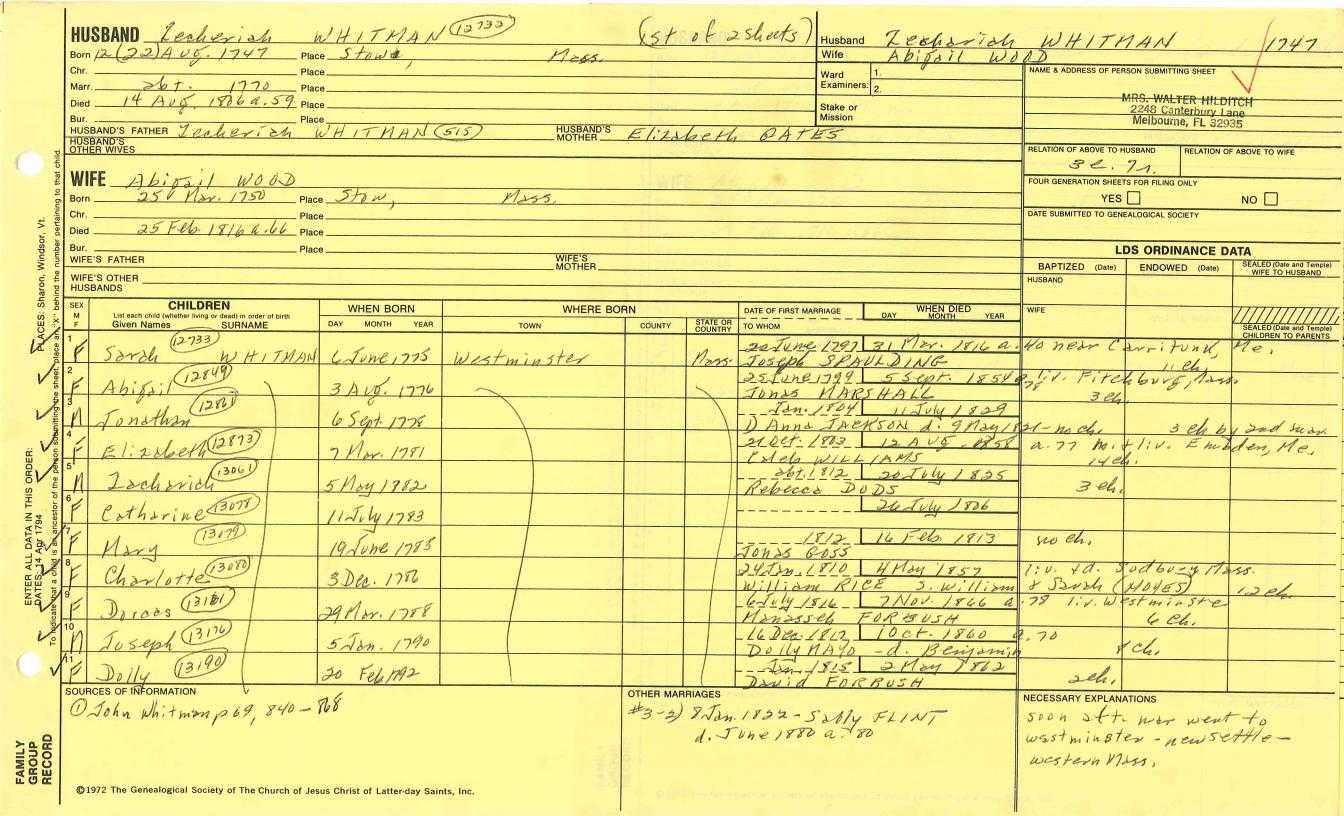 HUSBAND Zecheriah WHITMAN (12732) (1st of 2 sheets)
Born 12 (22) Aug. 1747 Place Stow, Mass.
Chr. Place
Marr. abt. 1770 Place
Died 14 Aug. 1806 a. 59 Place
Bur. Place
HUSBAND'S FATHER Zecheriah WHITMAN (515) HUSBAND'S MOTHER Elizabeth GATES
HUSBAND'S OTHER WIVES
Husband Zechariah WHITMAN 1747
Wife Abigail WOOD
Ward Examiners: 1.
2.
Stake or Mission
NAME & ADDRESS OF PERSON SUBMITTING SHEET
MRS. WALTER HILDITCH
2248 Canterbury Lane
Melbourne, FL 32935
RELATION OF ABOVE TO HUSBAND RELATION OF ABOVE TO WIFE
3c. 7r.
FOUR GENERATION SHEETS FOR FILING ONLY
YES NO
DATE SUBMITTED TO GENEALOGICAL SOCIETY
WIFE Abigail WOOD
Born 25 Mar. 1750 Place Stow, Mass.
Chr. Place
Died 25 Feb. 1816 a. 66 Place
Bur. Place
WIFE'S FATHER WIFE'S MOTHER
WIFE'S OTHER HUSBANDS
LDS ORDINANCE DATA
BAPTIZED (Date) ENDOWED (Date) SEALED (Date and Temple) WIFE TO HUSBAND
HUSBAND
WIFE
SEALED (Date and Temple) CHILDREN TO PARENTS
SEX M F
CHILDREN
List each child (whether living or dead) in order of birth
Given Names SURNAME
WHEN BORN
DAY MONTH YEAR
WHERE BORN
TOWN COUNTY STATE OR COUNTRY
DATE OF FIRST MARRIAGE
TO WHOM
WHEN DIED
DAY MONTH YEAR
1 F Sarah (12733) WHITMAN 6 June 1775 Westminster Mass. 20 June 1797 31 Mar. 1816 a. 40 near Carritunk, Me.
Joseph SPAULDING 11 ch.
2 F Abigail (12849) 3 Aug. 1776 25 June 1799 5 Sept. 1854 liv. Fitchburg, Mass.
Jonas MARSHALL 3 ch.
3 M Jonathan 6 Sept. 1778 Jan. 1804 11 July 1829
D Anna JACKSON d. 9 May 1821 - no ch. 3 ch by 2nd mar
4 F Elizabeth (12873) 7 Mar. 1781 21 Oct. 1803 12 Aug. 1858 a. 77 m. & liv. Embden, Me.
Caleb WILLIAMS 14 ch.
5 M Zachariah (13061) 5 May 1782 abt. 1812 20 July 1825
Rebecca DODS 3 ch.
6 F Catharine (13078) 11 July 1783 26 July 1806
7 F Mary (13079) 19 June 1785 1812 16 Feb. 1813 no ch.
Jonas GOSS
8 F Charlotte (13080) 3 Dec. 1786 24 Jan. 1810 4 May 1857 liv. & d. Sudbury, Mass.
William RICE S. William & Sarah (NOYES) 12 ch.
9 F Dorcas 29 Mar. 1788 6 July 1816 7 Nov. 1866 a. 78 liv. Westminster
Manasseh FORBUSH 6 ch.
10 M Joseph (13176) 5 Jan. 1790 16 Dec. 1817 1 Oct. 1860 a. 70
Dolly MAYO - d. Benjamin 8 ch.
11 F Dolly (13190) 20 Feb. 1792 Jan. 1815 2 May 1862
David FORBUSH 2 ch.
SOURCES OF INFORMATION
① John Whitman p 69, 840-868
OTHER MARRIAGES
#3-2) 8 Jan. 1822 - Sally FLINT
d. June 1880 a. 80
NECESSARY EXPLANATIONS
soon aft. mar went to
westminster - new settle-
western Mass.
©1972 The Genealogical Society of The Church of Jesus Christ of Latter-day Saints, Inc.
FAMILY GROUP RECORD
ENTER ALL DATA IN THIS ORDER:
DATES: 14 Apr 1794 PLACES: Sharon, Windsor, Vt.
To indicate that a child is an ancestor of the person submitting the sheet, place an "X" behind the number pertaining to that child.